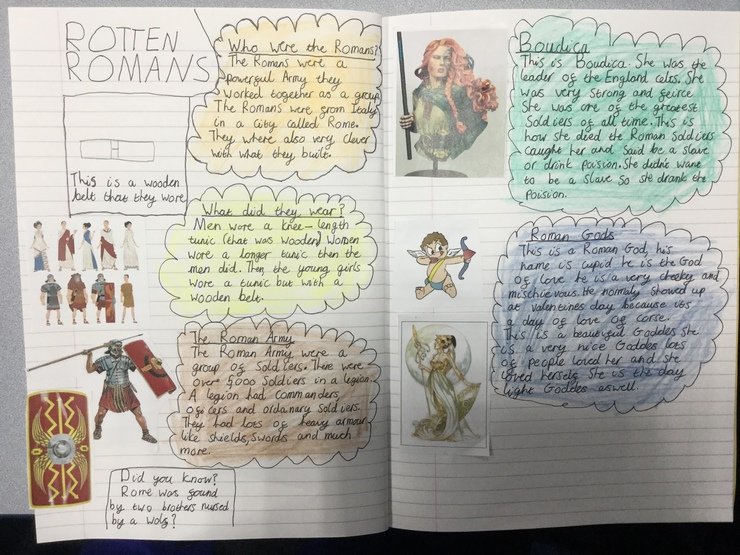 ROTTEN
ROMANS
This is a wooden
belt that they wore
Who were the Romans?
The Romans were a
powerful Army they
worked together as a group
The Romans were from Italy
in a city called Rome.
They where also very clever
with what they built.
What did they wear?
Men wore a knee-length
tunic (that was wooden) Women
wore a longer tunic then the
men did. Then the young girls
wore a tunic but with a
wooden belt.
The Roman Army
The Roman Army were a
group of Soldiers. There were
over 5,000 Soldiers in a legion.
A legion had commanders,
officers and ordanary soldiers.
They had lots of heavy armour
like shields, swords and much
more.
Did you know?
Rome was found
by two brothers nursed
by a wolf?
Boudica
This is Boudica. She was the
leader of the England celts. She
was very strong and feirce
She was one of the greatest
Soldiers of all time. This is
how she died the Roman Soldiers
caught her and said be a slave
or drink poision. She didn't want
to be a slave so she drank the
poision.
Roman Gods
This is a Roman God, his
name is cupid he is the God
of love he is a very cheeky and
mischievous. He normaly showed up
at valentines day because its
a day of love of corse.
This is a beautiful Goddes she
is a very nice Goddes lots
of people loved her and she
loved herself. She is the day
light Goddes aswell.